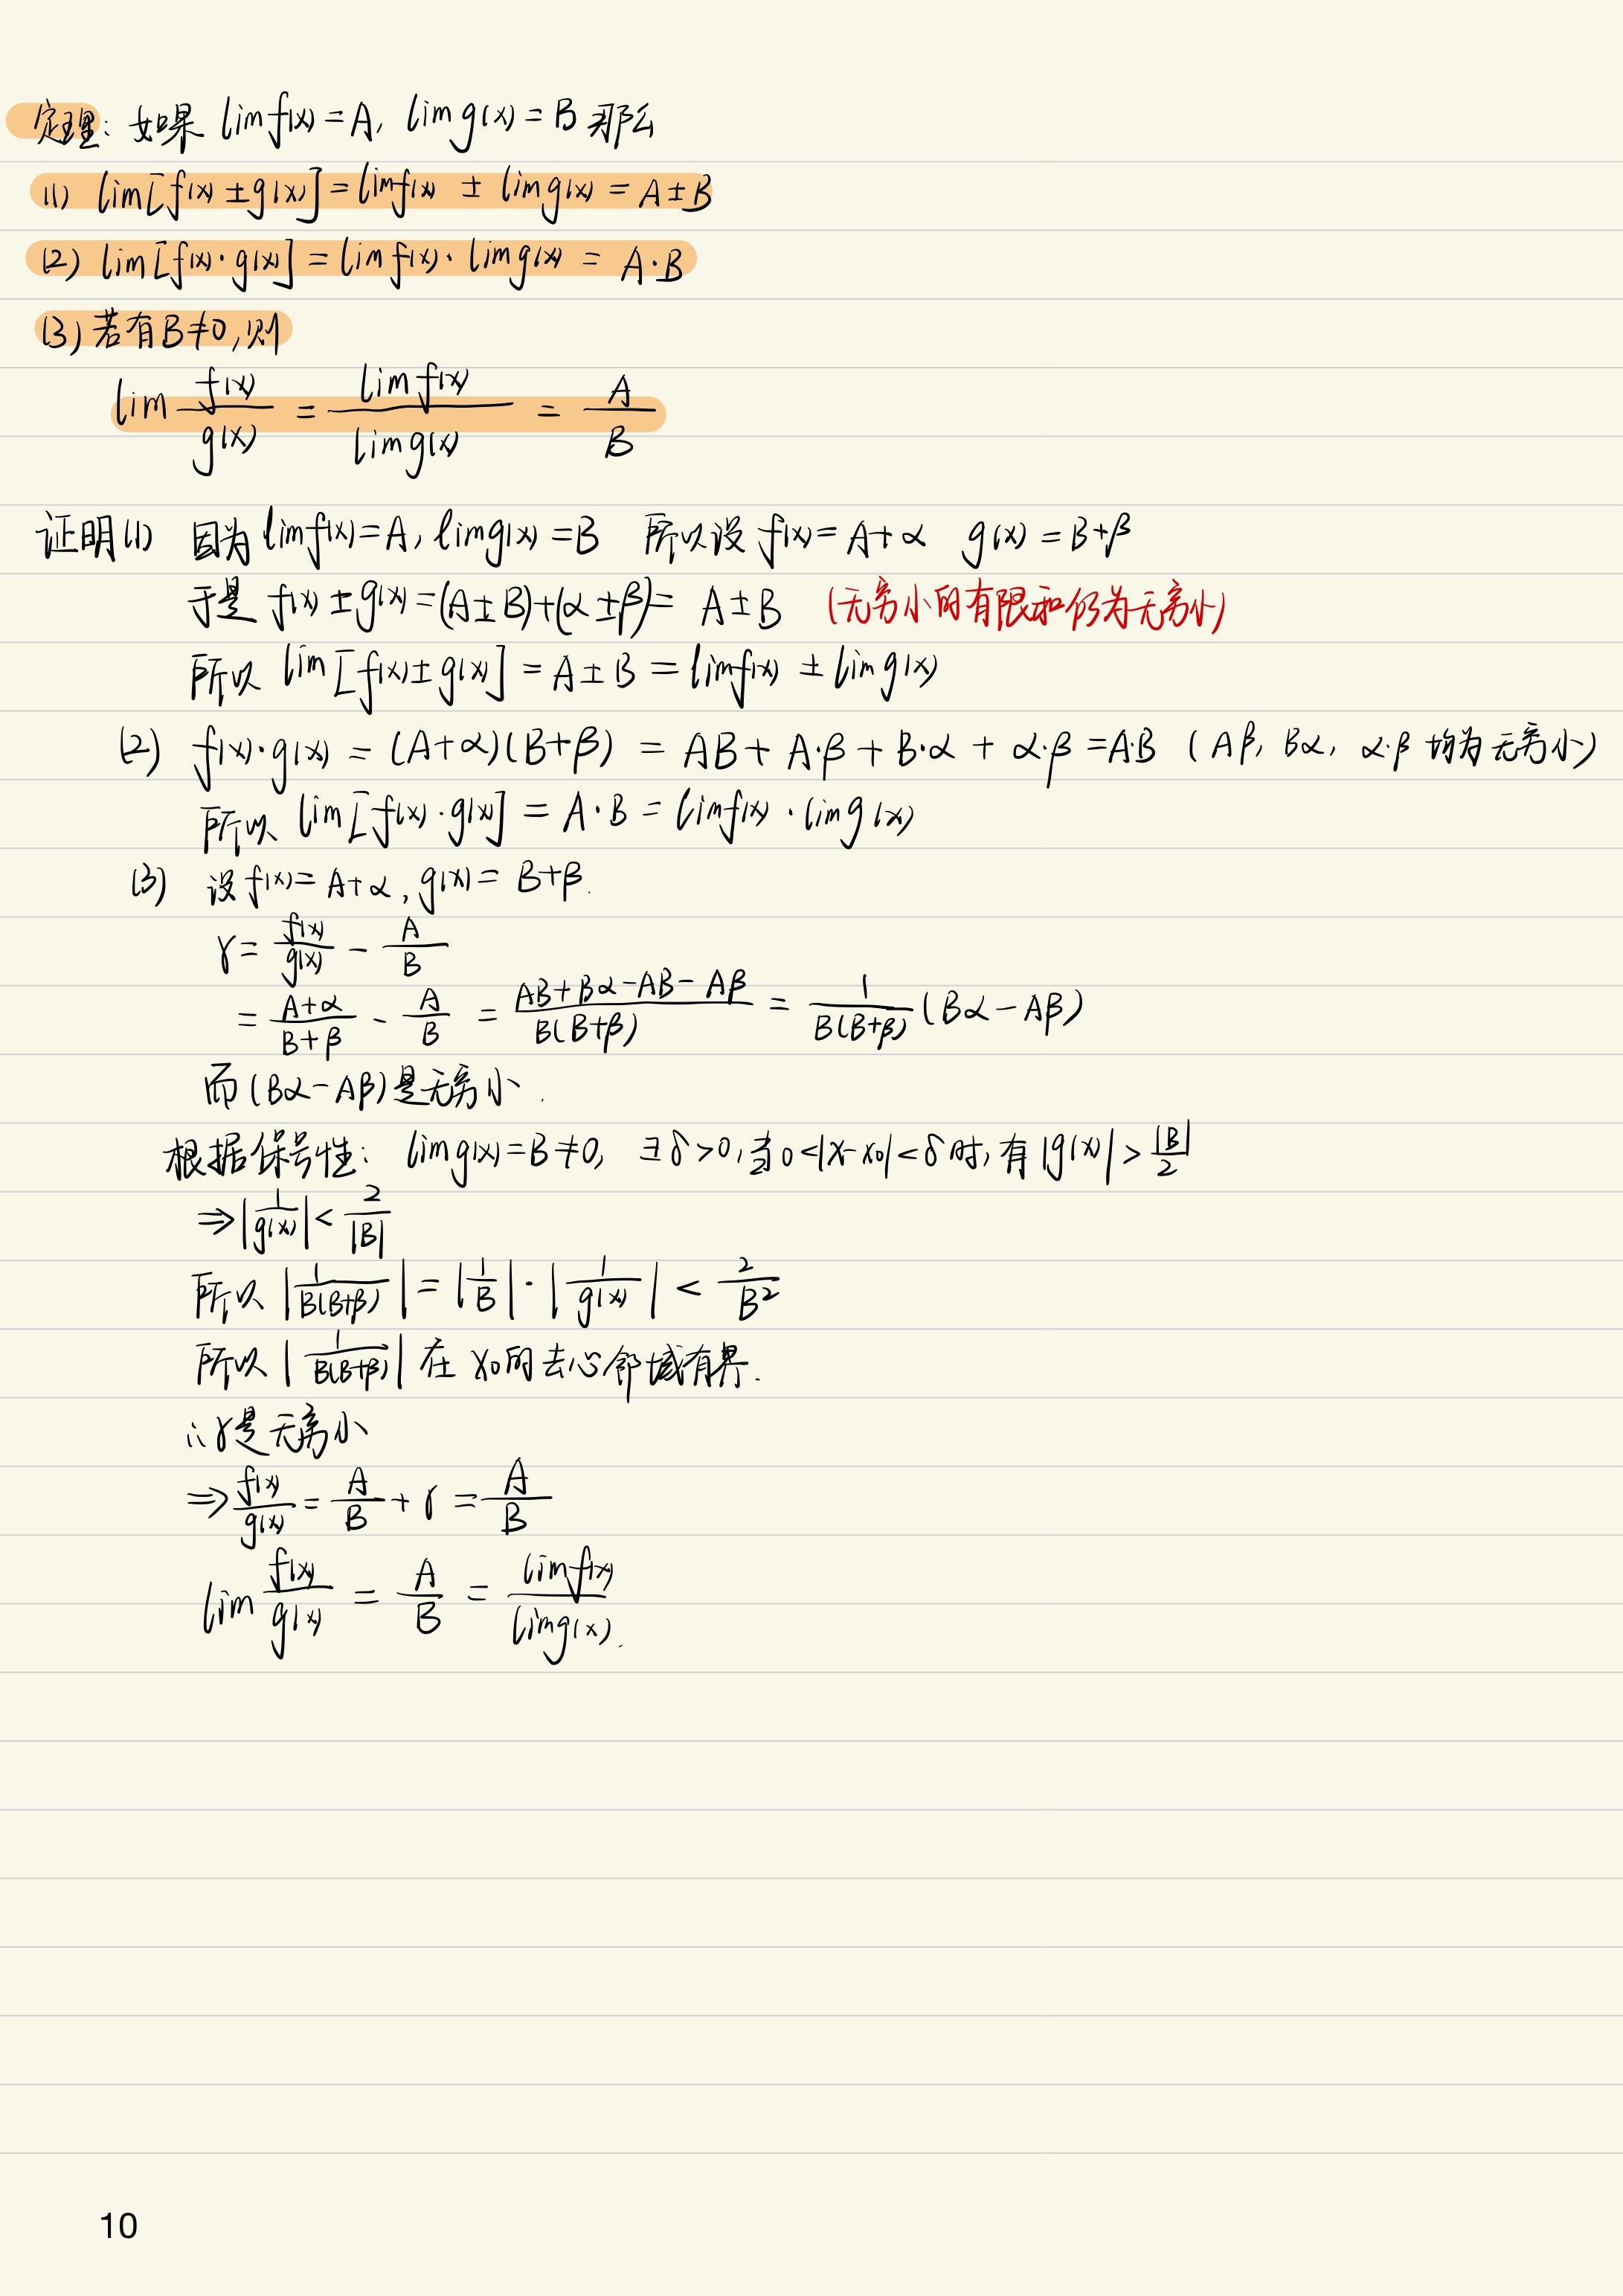 定理：如果 lim f(x) = A, lim g(x) = B 那么
(1) lim[f(x) ± g(x)] = lim f(x) ± lim g(x) = A ± B
(2) lim[f(x)·g(x)] = lim f(x)·lim g(x) = A·B
(3) 若有B≠0,则
lim f(x)/g(x) = lim f(x)/lim g(x) = A/B
证明(1) 因为 lim f(x) = A, lim g(x) = B 所以设 f(x) = A+α g(x) = B+β
于是 f(x) ± g(x) = (A±B)+(α±β) = A±B (无穷小的有限和仍为无穷小)
所以 lim[f(x) ± g(x)] = A ± B = lim f(x) ± lim g(x)
(2) f(x)·g(x) = (A+α)(B+β) = AB + A·β + B·α + α·β = A·B (Aβ, Bα, α·β 均为无穷小)
所以 lim[f(x)·g(x)] = A·B = lim f(x)·lim g(x)
(3) 设 f(x) = A+α, g(x) = B+β.
γ = f(x)/g(x) - A/B
= (A+α)/(B+β) - A/B = (AB+Bα-AB-Aβ)/(B(B+β)) = 1/(B(B+β)) (Bα-Aβ)
而 (Bα-Aβ) 是无穷小.
根据保号性: lim g(x) = B≠0, ∃δ>0, 当0<|x-x₀|<δ时, 有 |g(x)| > |B|/2
⇒ |1/g(x)| < 2/|B|
所以 |1/(B(B+β))| = |1/B|·|1/g(x)| < 2/B²
所以 |1/(B(B+β))| 在 x₀的去心邻域有界.
∴γ是无穷小
⇒ f(x)/g(x) = A/B + γ = A/B
lim f(x)/g(x) = A/B = lim f(x)/lim g(x).
10